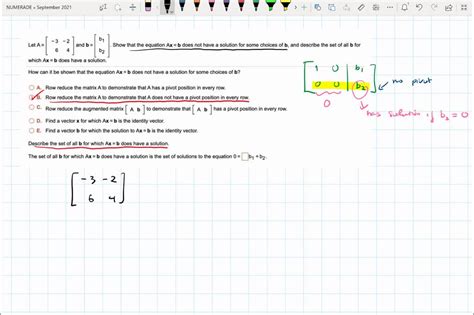 NUMERADE » September 2021
Let A = [ -3 -2 6 4 ] and b = [ b₁ b₂ ]. Show that the equation Ax = b does not have a solution for some choices of b, and describe the set of all b for
which Ax = b does have a solution.
How can it be shown that the equation Ax = b does not have a solution for some choices of b?
A. Row reduce the matrix A to demonstrate that A has a pivot position in every row.
B. Row reduce the matrix A to demonstrate that A does not have a pivot position in every row.
C. Row reduce the augmented matrix [ A b ] to demonstrate that [ A b ] has a pivot position in every row.
D. Find a vector x for which Ax = b is the identity vector.
E. Find a vector b for which the solution to Ax = b is the identity vector.
Describe the set of all b for which Ax = b does have a solution.
The set of all b for which Ax = b does have a solution is the set of solutions to the equation 0 = b₁ + b₂.
1 0 b₁
0 0 b₂
no pivot
0
has solution if b₂ = 0
-3 -2
6 4